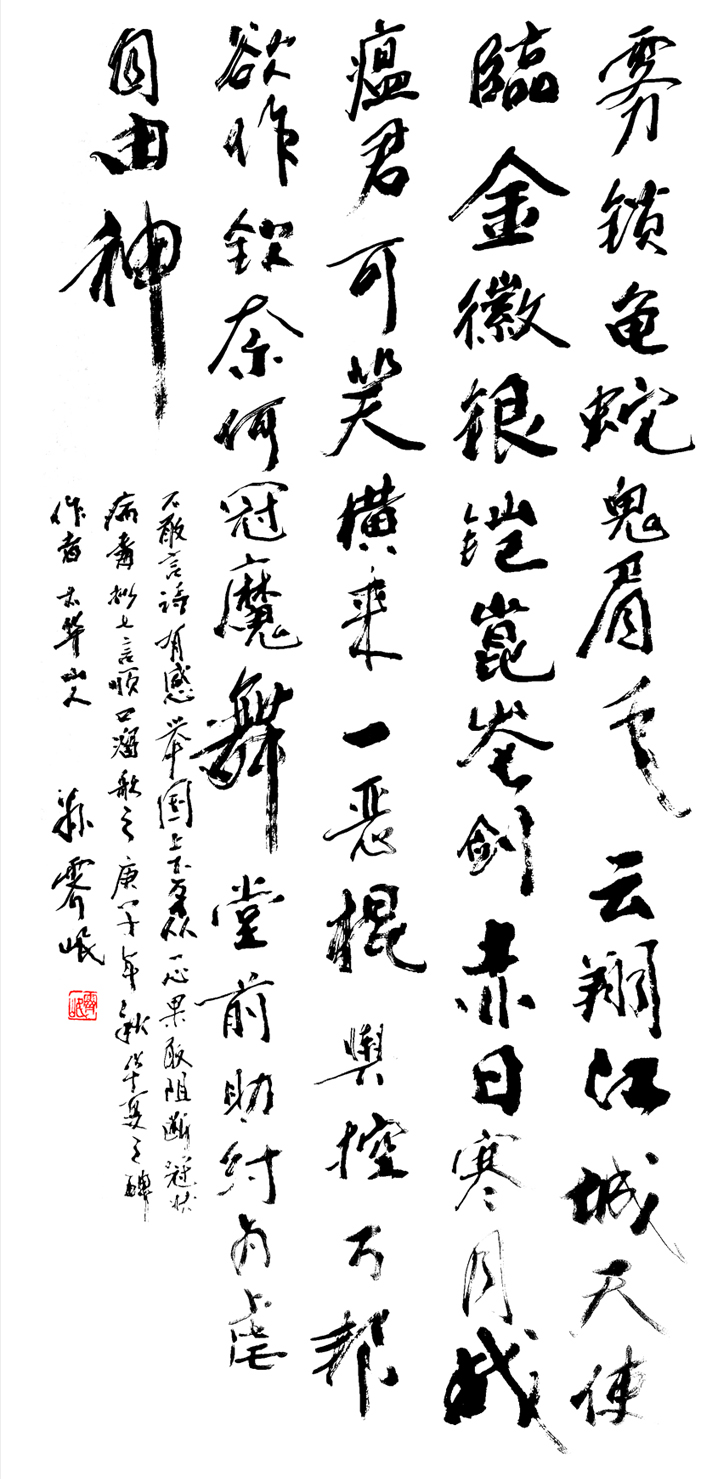 雾锁龟蛇鬼眉 云翔江城天使
临金徽银铠崑崙剑赤日寒月战
瘟君可笑横来一恶棍 舆控万帮
欲作钦奈何冠魔舞堂前助纣为虐
自由神
不敢言诗有感举国上下万众一心果敢阻断冠状
病毒拟七言顺口溜歌之庚子年秋华夏之
作者 华山人 孙霁岷